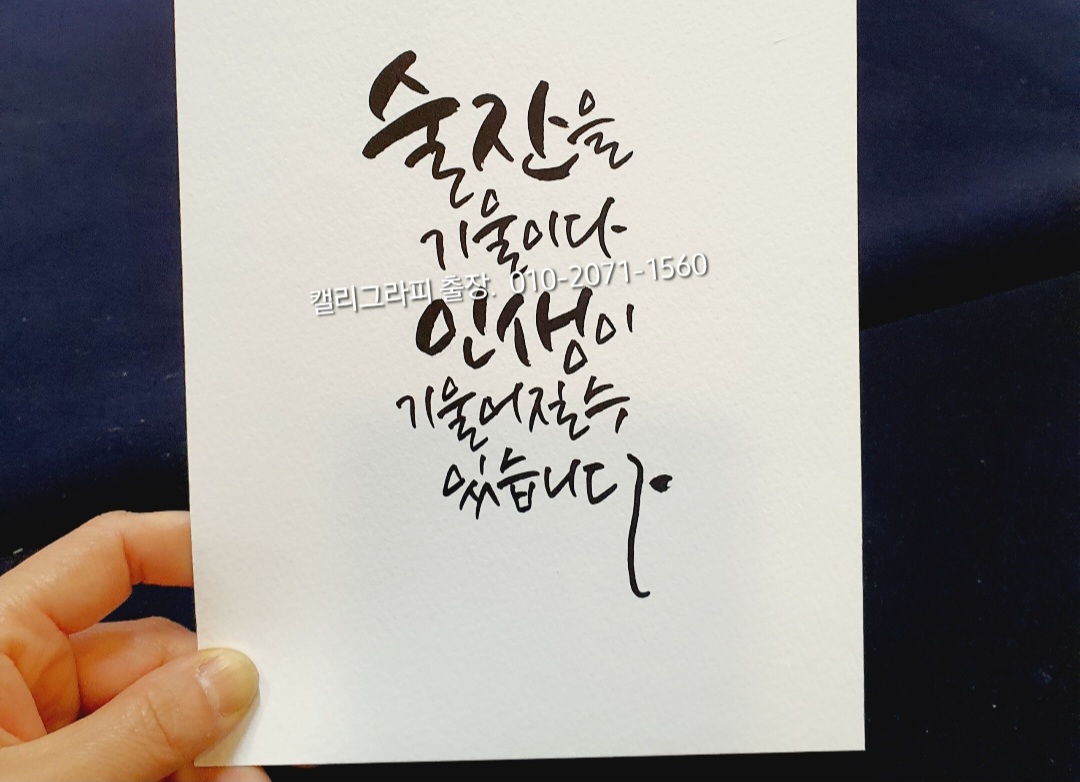 술잔을
기울이다
캘리그라피 출장. 010-2071-1560
인생이
기울어질수
있습니다.